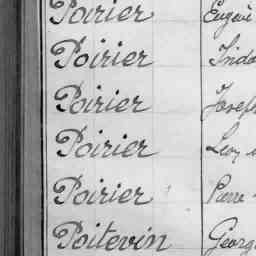 Poirier Eugène
Poirier
Poirier Joseph
Poirier Léon
Poirier Pierre
Poitevin Georg